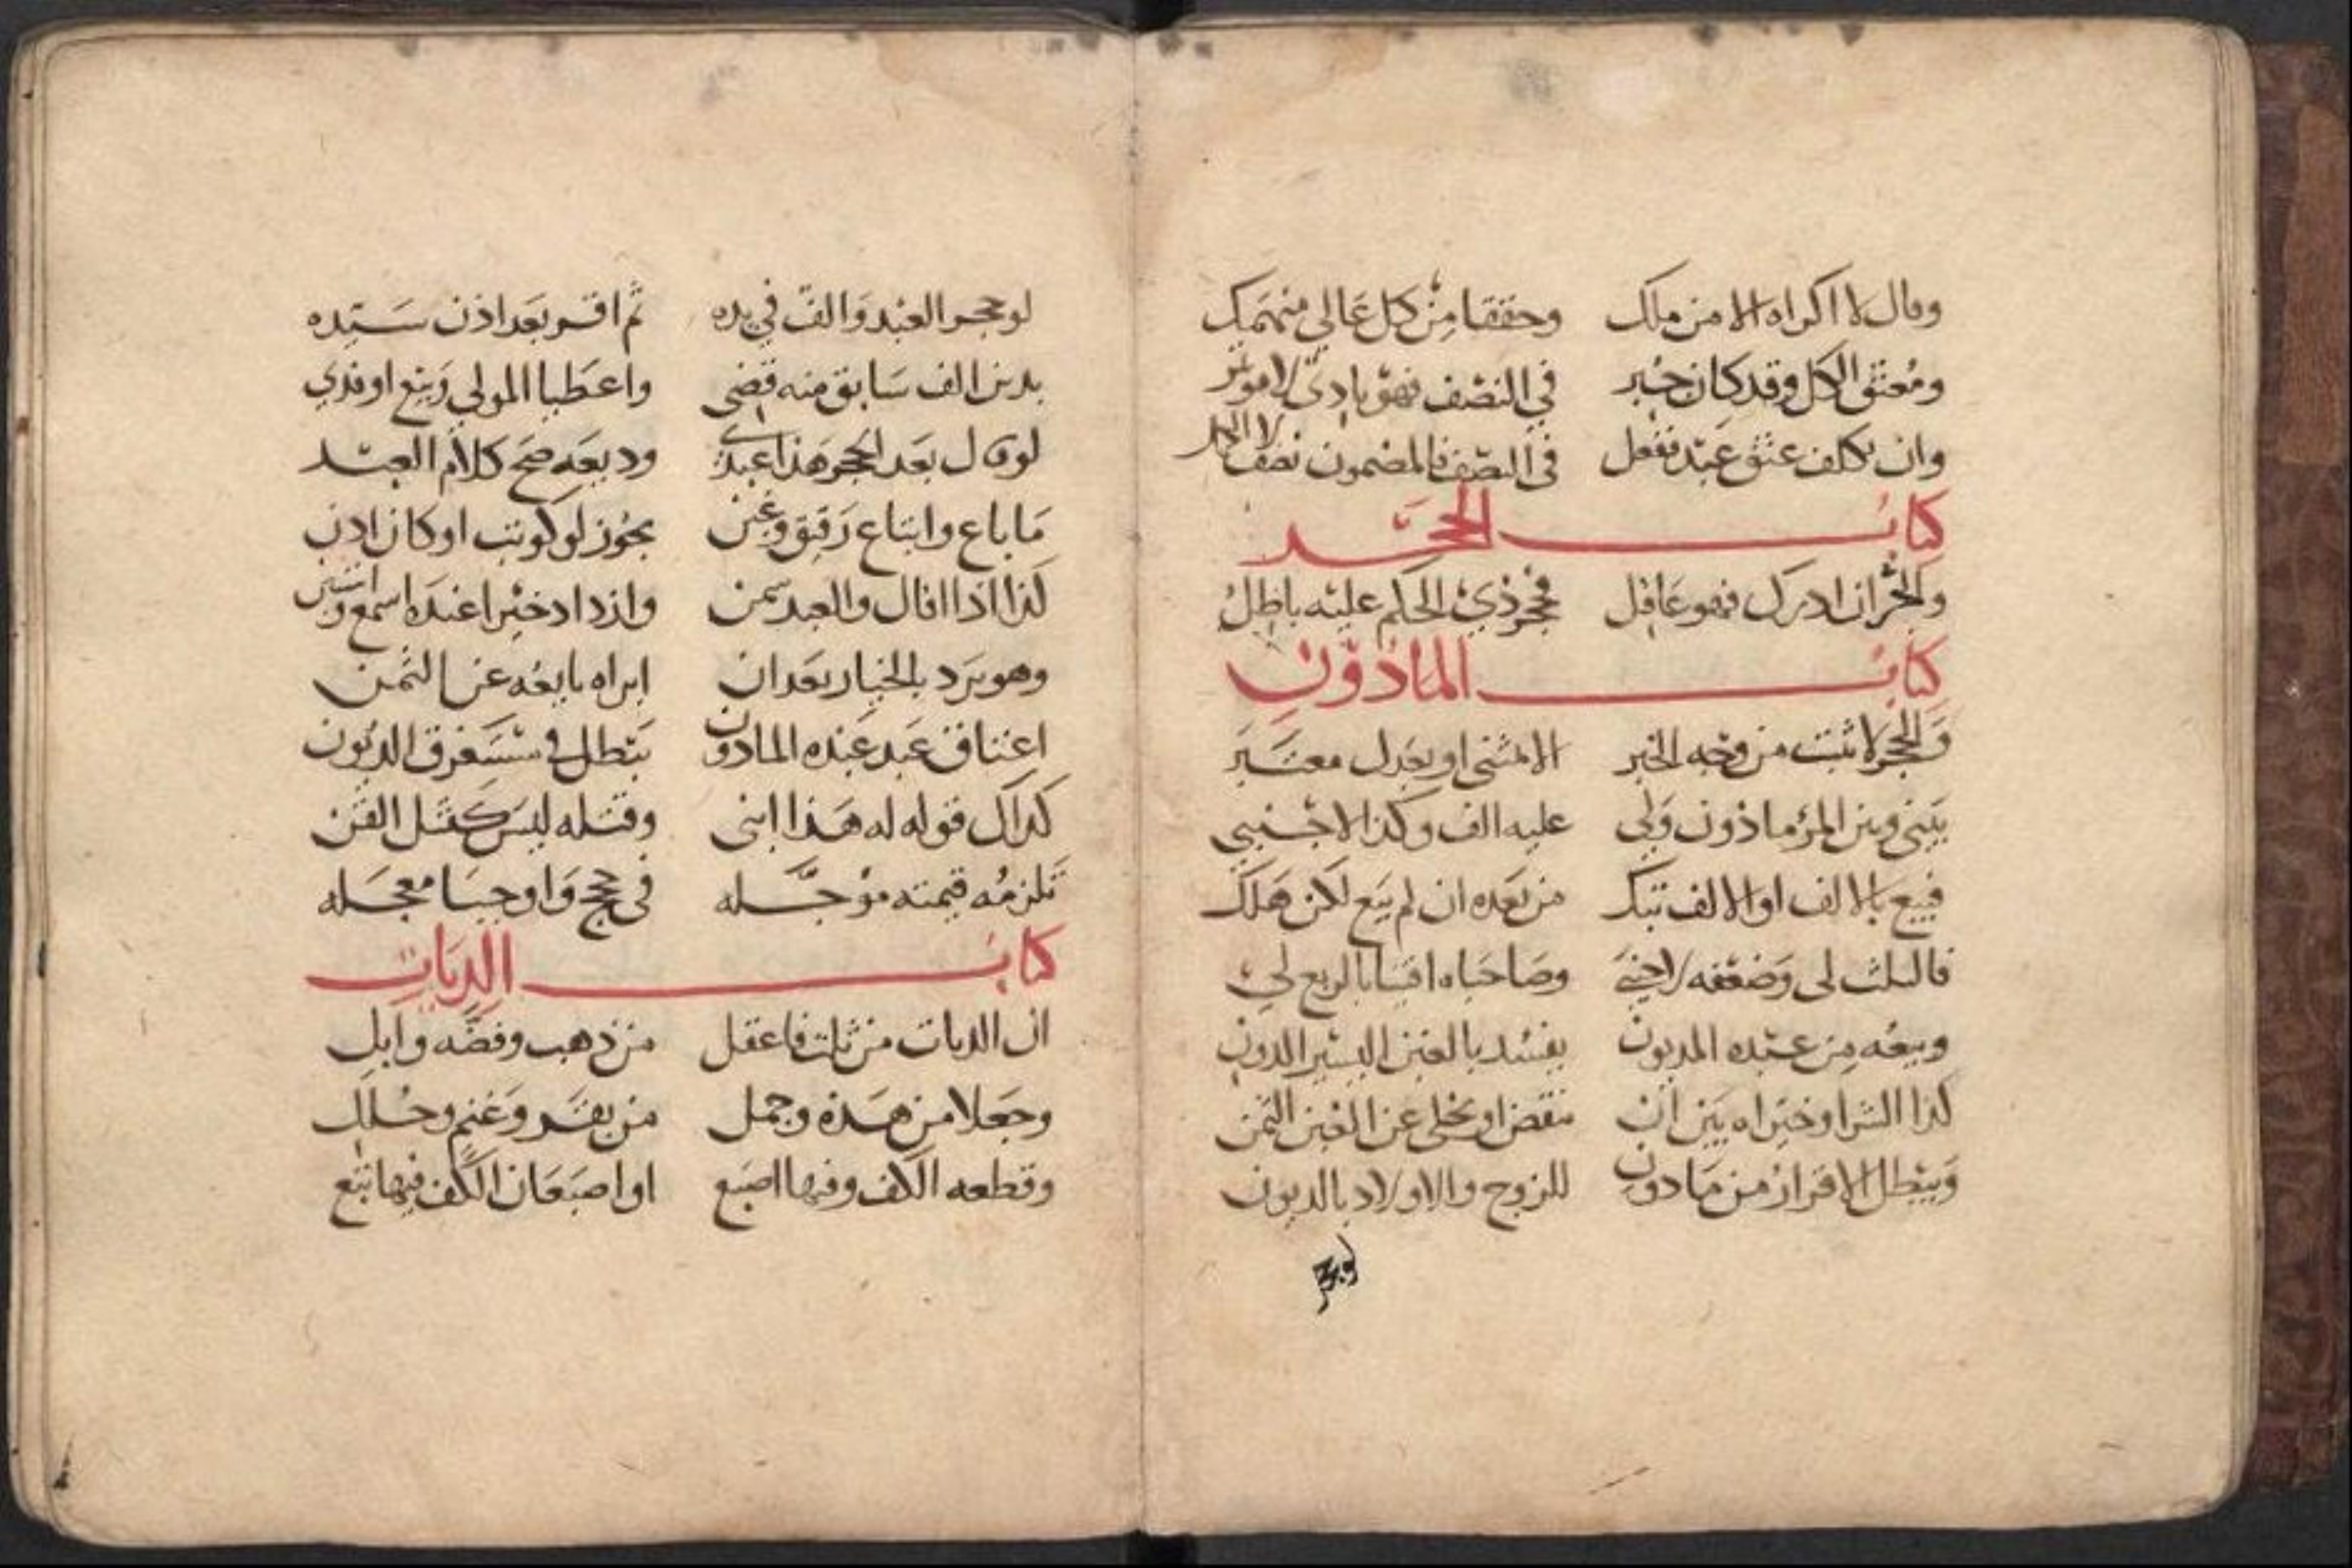 وقال لا اكراه الا من ملك وحققا من كل عالي منهمك
ومعتق الكل وقد كان جبر في النصف فهو بادي لا موتمر
وان يكلف عتق عبد ففعل في النصف فالمضمون نصف لا الكل
كتاب الحجر
والحر ان ادرك فهو عاقل فحجر ذي الحكم عليه باطل
كتاب الماذون
والحجر لا يثبت من وجه الخبر الا مثنى او بعدل معتبر
بيني وبين المرء ماذون ولي عليه الف وكذا الاجنبي
فبيع بالالف او الالف تبك من بعده ان لم يبع لكن هلك
فالثلث لي وضعفه لاجنبي وصاحباه افتيا بالربع لي
وبيعه من عبده المديون يفسد بالغبن اليسير الدون
كذا الشرا وخيراه بين ان ينقض او يخلى عن الغبن الثمن
ويبطل الاقرار من ماذون للزوج والاولاد بالديون
لو حجر
لو حجر العبد والف في يده ثم اقر بعد اذن سيده
بدين الف سابق منه قضى واعطيا المولى وبيع او فدي
لو قال بعد الحجر هذا عندي وديعه صح كلام العبد
ما باع وابتاع رقيق وغبن يجوز لو كوتب او كان اذن
كذا اذا اقال والعبد سمن وازداد خيرا عنده اسمع
وهو يرد بالخيار بعد ان ابراه بايعه عن الثمن
اعتاق عبد عبده الماذون يبطل في مستغرق الديون
كذاك قوله له هذا ابني وقتله ليس كقتل القن
تلزمه قيمته موجله في حجج واوجبا معجله
كتاب الديات
ان الديات من ثلث فاعقل من ذهب وفضه وابل
وجعلا من هذه وجمل من بقر وغنم وحلل
وقطعه الكف وفيها اصبع او اصبعان الكف فيها تتبع